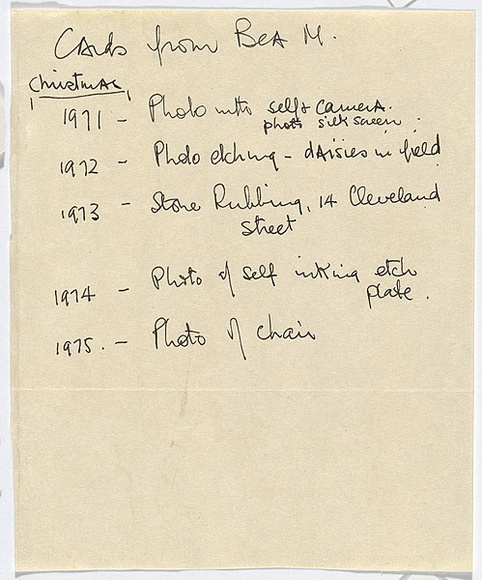 Cards from Bea M.
Christmas
1971 - Photo with self & camera.
photo silk screen.
1972 - Photo etching - daisies in field
1973 - Stone Rubbing, 14 Cleveland
street
1974 - Photo of self inking etch
plate.
1975. - Photo of chair